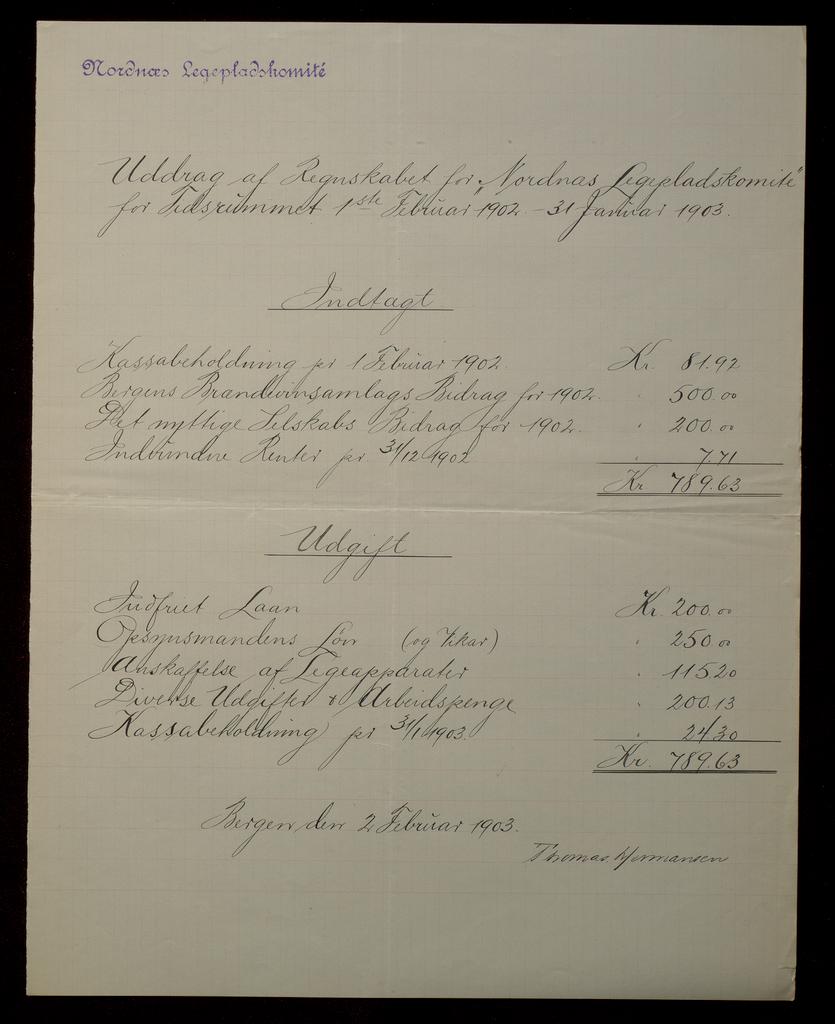 Nordnæs Legepladskomité
Uddrag af Regnskabet for "Nordnæs Legepladskomite"
for Tidsrummet 1ste Februar 1902 - 31 Januar 1903.
Indtægt
Kassabeholdning pr 1 Februar 1902. Kr. 81.92
Bergens Brændevinsamlags Bidrag for 1902. " 500.00
Det nyttige Selskabs Bidrag for 1902. " 200.00
Indvundne Renter pr. 31/12 1902 " 7.71
Kr 789.63
Udgift
Indfriet Laan Kr. 200.00
Opsynsmandens Løn (og Vikar) " 250.00
Anskaffelse af Legeapparater " 115.20
Diverse Udgifter & Arbeidspenge " 200.13
Kassabeholdning pr 31/1 1903. " 24.30
Kr. 789.63
Bergen den 2 Februar 1903.
Thomas Hermansen